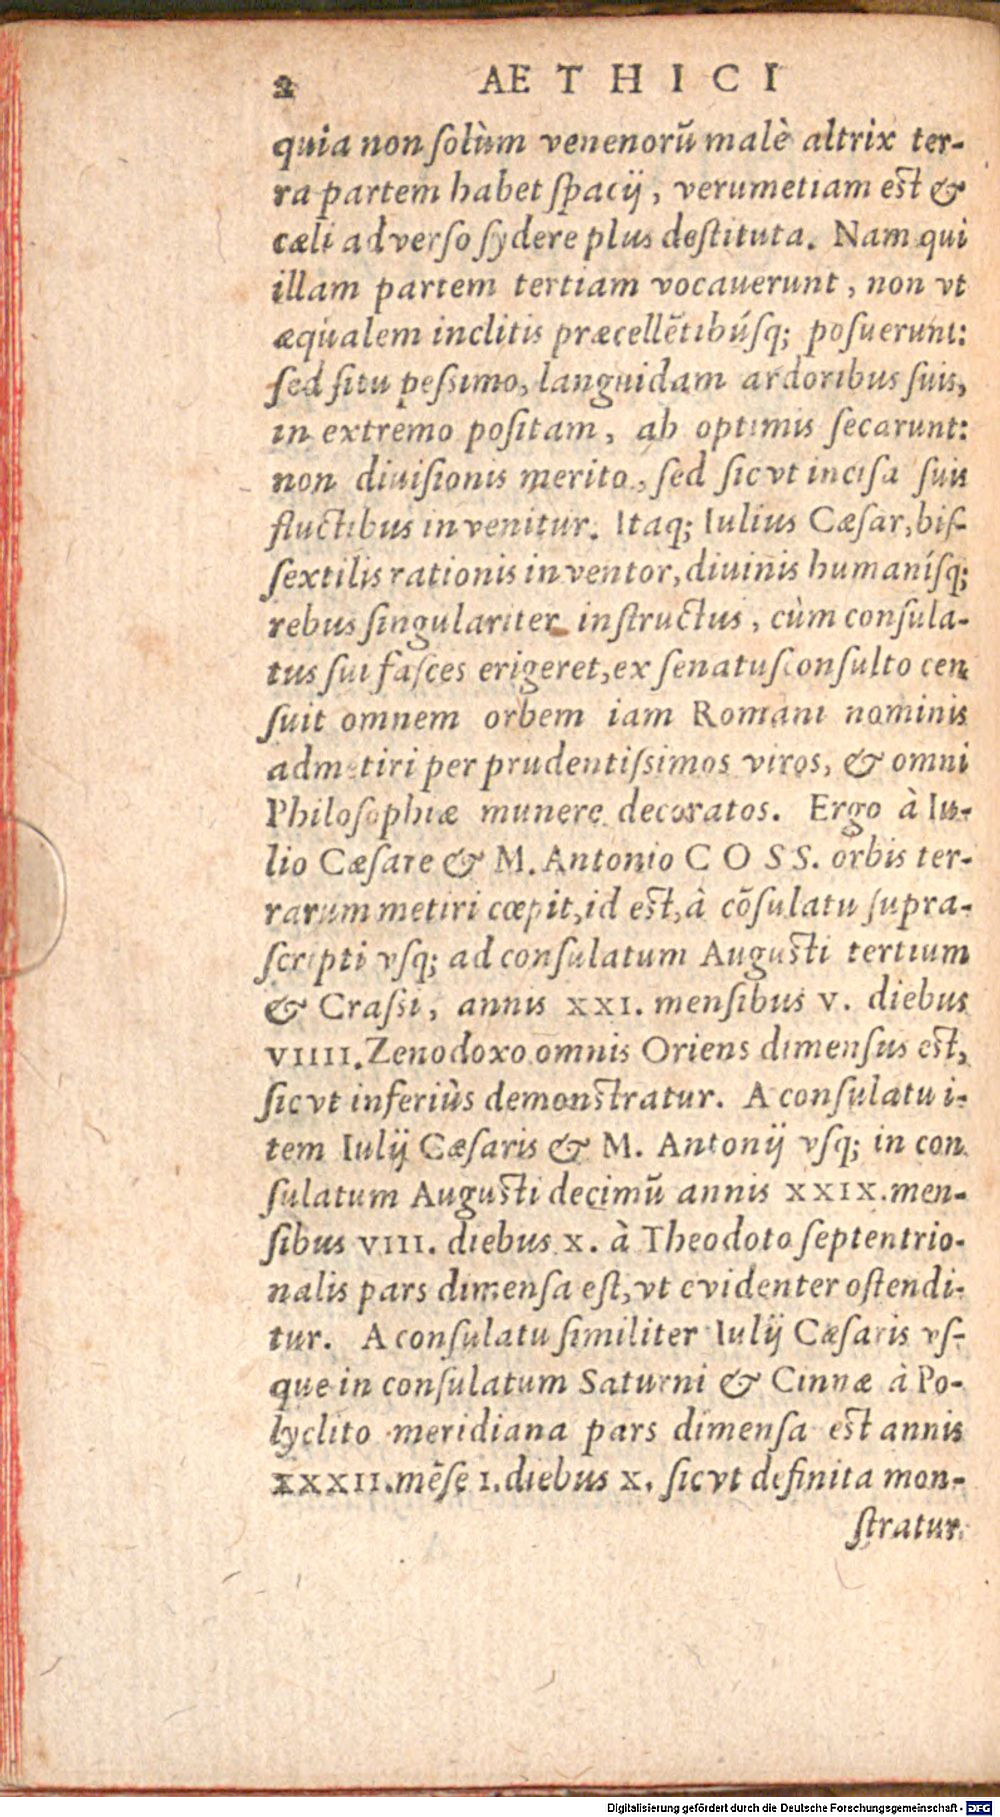 2 AETHICI
quia non ſolùm venenorũ malè altrix ter-
ra partem habet ſpacij, verumetiam est &
cæli adverſo ſydere plus deſtituta. Nam qui
illam partem tertiam vocauerunt, non vt
æqualem inclitis præcellẽtibúſq; poſuerunt:
ſed ſitu peſsimo, languidam ardoribus ſuis,
in extremo poſitam, ab optimis ſecarunt:
non diuiſionis merito, ſed ſicvt inciſa ſuis
fluctibus invenitur. Itaq; Iulius Cæſar, biſ-
ſextilis rationis inventor, diuinis humaníſq;
rebus ſingulariter inſtructus, cùm conſula-
tus ſui faſces erigeret, ex ſenatuſconſulto cen
ſuit omnem orbem iam Romani nominis
admetiri per prudentiſsimos viros, & omni
Philoſophiæ munere decoratos. Ergo à Iu-
lio Cæſare & M. Antonio COSS. orbis ter-
rarum metiri cœpit, id est, à cõſulatu ſupra-
ſcripti vſq; ad conſulatum Auguſti tertium
& Craſsi, annis XXI. menſibus V. diebus
VIIII. Zenodoxo omnis Oriens dimenſus est,
ſicvt inferiùs demonſtratur. A conſulatu i-
tem Iulij Cæſaris & M. Antonij vſq; in con
ſulatum Auguſti decimũ annis XXIX. men-
ſibus VIII. diebus X. à Theodoto ſeptentrio-
nalis pars dimenſa eſt, vt evidenter oſtendi-
tur. A conſulatu ſimiliter Iulij Cæſaris vſ-
que in conſulatum Saturni & Cinnæ à Po-
lyclito meridiana pars dimenſa est annis
XXXII. mẽſe I. diebus X. ſicvt definita mon-
ſtratur.
Digitalisierung gefördert durch die Deutsche Forschungsgemeinschaft - DFG